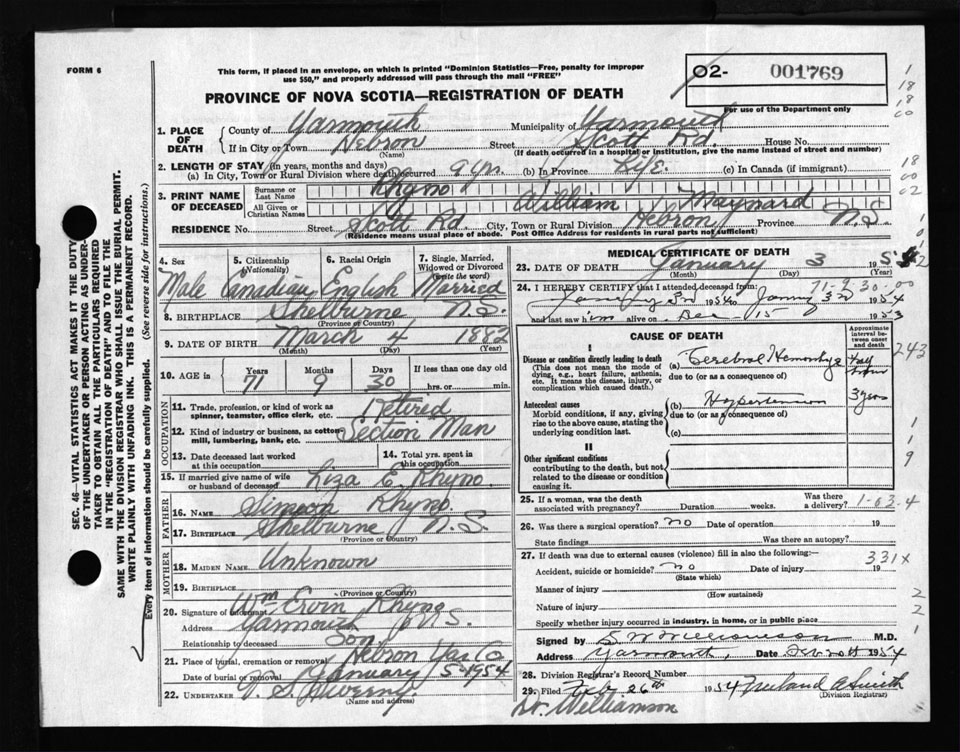 FORM 6
This form, if placed in an envelope, on which is printed "Dominion Statistics—Free, penalty for improper
use $50," and properly addressed will pass through the mail "FREE"
O2- 001769
For use of the Department only
PROVINCE OF NOVA SCOTIA—REGISTRATION OF DEATH
1. PLACE OF DEATH
County of Yarmouth Municipality of Yarmouth
If in City or Town Hebron (Name) Street Scott Rd. House No.
(If death occurred in a hospital or institution, give the name instead of street and number)
2. LENGTH OF STAY (in years, months and days)
(a) In City, Town or Rural Division where death occurred 9 yrs. (b) In Province Life. (c) In Canada (if immigrant)
3. PRINT NAME OF DECEASED
Surname or Last Name Rhyno
All Given or Christian Names William Maynard
RESIDENCE No. Street Scott Rd. City, Town or Rural Division Hebron Province N.S.
(Residence means usual place of abode. Post Office Address for residents in rural parts not sufficient)
4. Sex Male
5. Citizenship (Nationality) Canadian
6. Racial Origin English
7. Single, Married, Widowed or Divorced (write the word) Married
8. BIRTHPLACE Shelburne N.S.
(Province or Country)
9. DATE OF BIRTH March 4 1882
(Month) (Day) (Year)
10. AGE in Years 71 Months 9 Days 30 If less than one day old hrs. or min.
OCCUPATION
11. Trade, profession, or kind of work as spinner, teamster, office clerk, etc. Retired
12. Kind of industry or business, as cotton-mill, lumbering, bank, etc. Section Man
13. Date deceased last worked at this occupation
14. Total yrs. spent in this occupation
15. If married give name of wife or husband of deceased Liza E. Rhyno.
FATHER
16. Name Simeon Rhyno.
17. Birthplace Shelburne N.S.
(Province or Country)
MOTHER
18. Maiden Name Unknown
19. Birthplace
(Province or Country)
20. Signature of informant Wm Ervin Rhyno
Address Yarmouth N.S.
Relationship to deceased Son
21. Place of burial, cremation or removal Hebron Yar Co
Date of burial or removal January 5-1954
22. Undertaker V. S. Sweeny
(Name and address)
MEDICAL CERTIFICATE OF DEATH
23. DATE OF DEATH January 3 195
(Month) (Day) (Year)
24. I HEREBY CERTIFY that I attended deceased from:
71-9-30-00
3rd 1954 to 3rd 1954
and last saw him alive on Dec 15 1953
CAUSE OF DEATH
Approximate interval between onset and death
I
Disease or condition directly leading to death
(This does not mean the mode of dying, e.g., heart failure, asthenia, etc. It means the disease, injury, or complication which caused death.)
(a) Cerebral Hemorrhage half hour
due to (or as a consequence of)
Antecedent causes
Morbid conditions, if any, giving rise to the above cause, stating the underlying condition last.
(b) Hypertension 3 years
due to (or as a consequence of)
(c)
II
Other significant conditions
contributing to the death, but not related to the disease or condition causing it.
25. If a woman, was the death associated with pregnancy? Duration weeks. Was there a delivery?
1-03.4
26. Was there a surgical operation? no Date of operation 19
State findings Was there an autopsy?
27. If death was due to external causes (violence) fill in also the following:—
331X
Accident, suicide or homicide? no Date of injury 19
(State which)
Manner of injury
(How sustained)
Nature of injury
Specify whether injury occurred in industry, in home, or in public place
Signed by S W Williamson M.D.
Address Yarmouth, Date 1954
28. Division Registrar's Record Number
29. Filed Feb 26th 1954 A Smith
(Division Registrar)
Dr. Williamson
SEC. 46—VITAL STATISTICS ACT MAKES IT THE DUTY
OF THE UNDERTAKER OR PERSON ACTING AS UNDER-
TAKER TO OBTAIN ALL THE PARTICULARS REQUIRED
IN THE "REGISTRATION OF DEATH" AND TO FILE THE
SAME WITH THE DIVISION REGISTRAR WHO SHALL ISSUE THE BURIAL PERMIT.
WRITE PLAINLY WITH UNFADING INK. THIS IS A PERMANENT RECORD.
Every item of information should be carefully supplied. (See reverse side for instructions.)
1
18
18
00
18
00
02
243
1
1
9
2
2
1